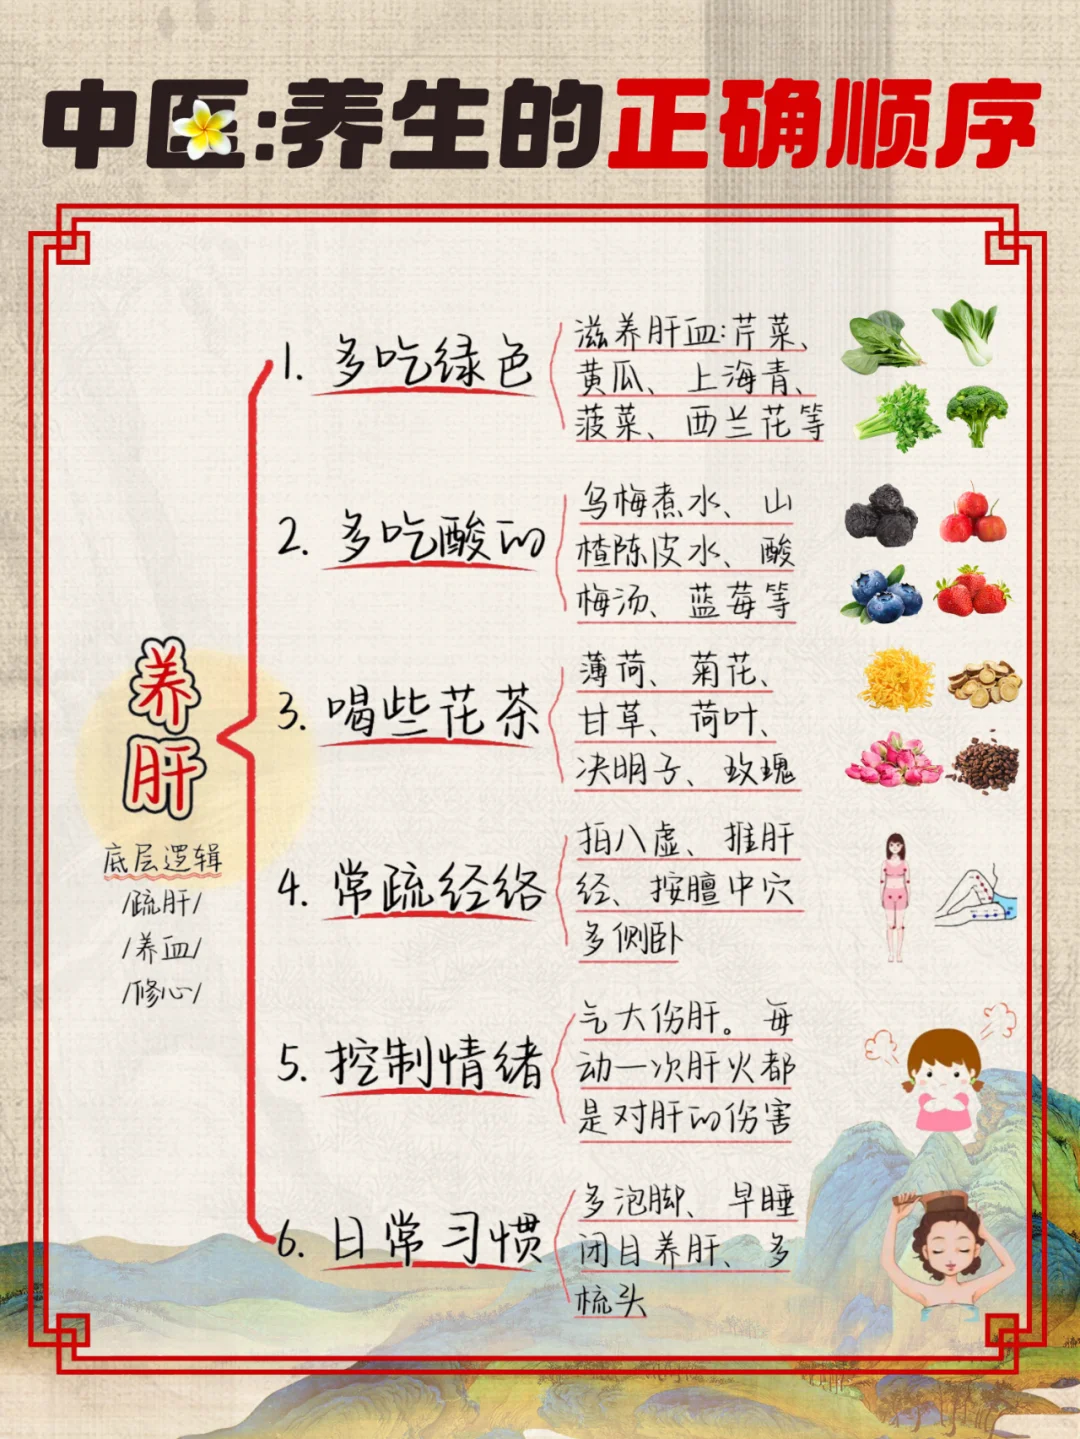 中医:养生的正确顺序
养肝
底层逻辑
/疏肝/
/养血/
/修心/
1. 多吃绿色
滋养肝血:芹菜、
黄瓜、上海青、
菠菜、西兰花等
2. 多吃酸的
乌梅煮水、山
楂陈皮水、酸
梅汤、蓝莓等
3. 喝些花茶
薄荷、菊花、
甘草、荷叶、
决明子、玫瑰
4. 常疏经络
拍八虚、推肝
经、按膻中穴
多侧卧
5. 控制情绪
气大伤肝。每
动一次肝火都
是对肝的伤害
6. 日常习惯
多泡脚、早睡
闭目养肝、多
梳头